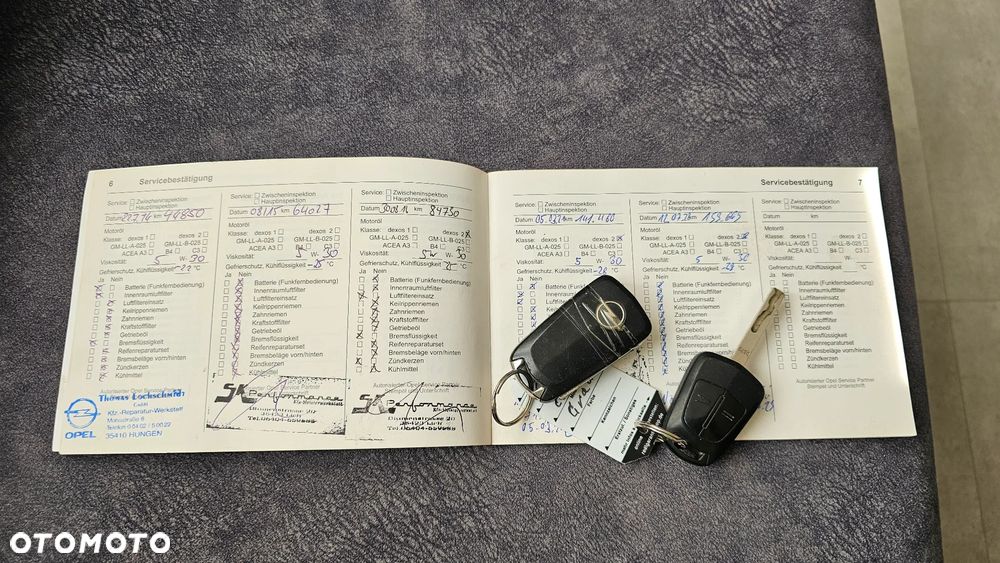 6 Servicebestätigung
Service: Zwischeninspektion
Hauptinspektion
Datum 22.7.14 km 44850
Motoröl
Klasse: dexos 1 dexos 2
GM-LL-A-025 GM-LL-B-025
ACEA A3 B4 C3
Viskosität: 5 W- 30
Gefrierschutz, Kühlflüssigkeit -22 °C
Ja Nein
Batterie (Funkfernbedienung)
Innenraumluftfilter
Luftfiltereinsatz
Keilrippenriemen
Zahnriemen
Kraftstofffilter
Getriebeöl
Bremsflüssigkeit
Reifenreparaturset
Bremsbeläge vorn/hinten
Zündkerzen
Kühlmittel
Autorisierter Opel Service Partner
Thomas Lochschmidt
GmbH
Kfz.-Reparatur-Werkstatt
OPEL
35410 HUNGEN
Service: Zwischeninspektion
Hauptinspektion
Datum 08.1.15 km 64027
Motoröl
Klasse: dexos 1 dexos 2
GM-LL-A-025 GM-LL-B-025
ACEA A3 B4 C3
Viskosität: 5 W- 30
Gefrierschutz, Kühlflüssigkeit -25 °C
Ja Nein
Batterie (Funkfernbedienung)
Innenraumluftfilter
Luftfiltereinsatz
Keilrippenriemen
Zahnriemen
Kraftstofffilter
Getriebeöl
Bremsflüssigkeit
Reifenreparaturset
Bremsbeläge vorn/hinten
Zündkerzen
Kühlmittel
SK Performance
Service: Zwischeninspektion
Hauptinspektion
km 84730
Motoröl
Klasse: dexos 1 dexos 2
GM-LL-A-025 GM-LL-B-025
ACEA A3 B4 C3
Viskosität: 5 W- 30
Gefrierschutz, Kühlflüssigkeit °C
Ja Nein
Batterie (Funkfernbedienung)
Innenraumluftfilter
Luftfiltereinsatz
Keilrippenriemen
Zahnriemen
Kraftstofffilter
Getriebeöl
Bremsflüssigkeit
Reifenreparaturset
Bremsbeläge vorn/hinten
Zündkerzen
Kühlmittel
Autorisierter Opel Service Partner
Stempel und Unterschrift
Performance
Servicebestätigung 7
Service: Zwischeninspektion
Hauptinspektion
Datum km 141.460
Motoröl
Klasse: dexos 1 dexos 2
GM-LL-A-025 GM-LL-B-025
ACEA A3 B4 C3
Viskosität: 5 W- 30
Gefrierschutz, Kühlflüssigkeit -28 °C
Ja Nein
Batterie (Funkfernbedienung)
Innenraumluftfilter
Service: Zwischeninspektion
Hauptinspektion
Datum km
Motoröl
Klasse: dexos 1 dexos 2
GM-LL-A-025 GM-LL-B-025
ACEA A3 B4 C3
Viskosität: 5 W- 30
Gefrierschutz, Kühlflüssigkeit -28 °C
Ja Nein
Batterie (Funkfernbedienung)
Innenraumluftfilter
Luftfiltereinsatz
Keilrippenriemen
Zahnriemen
Kraftstofffilter
Service: Zwischeninspektion
Hauptinspektion
Datum km
Motoröl
Klasse: dexos 1 dexos 2
GM-LL-A-025 GM-LL-B-025
ACEA A3 B4 C3
Viskosität: W-
Gefrierschutz, Kühlflüssigkeit °C
Ja Nein
Batterie (Funkfernbedienung)
Innenraumluftfilter
Luftfiltereinsatz
Keilrippenriemen
Zahnriemen
Kraftstofffilter
Getriebeöl
Bremsflüssigkeit
Reifenreparaturset
Bremsbeläge vorn/hinten
Zündkerzen
Kühlmittel
Autorisierter Opel Service Partner
Stempel und Unterschrift
OTOMOTO